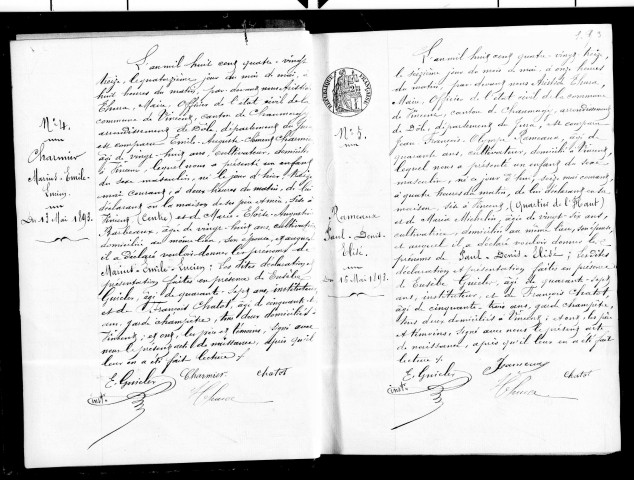 N° 4.
Charmier
Marius-Emile-
Lucien
Du 13 Mai 1893.
L'an mil huit cent quatre-vingt
treize, le quatorzième jour du mois de mai, à
heures du matin, par devant nous
Maire, Officier de l'état civil de la
commune de Vincent, canton de Chaumergy,
arrondissement de Dôle, département du Jura
est comparu Emile-Auguste Charmier
âgé de vingt huit ans, cultivateur, domicilié
à Vincent, lequel nous a présenté un enfant
du sexe masculin, né le jour d'hier, treize
mai courant, à deux heures du matin, de lui
déclarant en la maison de son père à lui, sise à
Vincent (Centre) et de Marie
âgée de vingt huit ans, cultivatrice
domiciliée au même lieu, son épouse, auquel
il a déclaré vouloir donner les prénoms de
Marius-Emile-Lucien; les dites déclaration et
présentation faites en présence de Eusèbe
Guicler, âgé de quarante-sept ans, instituteur
et de François Chatot, âgé de cinquante
ans, garde champêtre, tous deux domiciliés à
Vincent; et ont, les père et témoins, signé avec
nous le présent acte de naissance, après qu'il
leur en a été fait lecture
E. Guicler Charmier Chatot
inst.
REPUBLIQUE FRANÇAISE
N° 5.
Rameaux
Paul-Denis-
Elisé.
Du 15 Mai 1893.
L'an mil huit cent quatre-vingt treize,
le seizième jour du mois de mai, à onze heures
du matin, par devant nous
Maire, Officier de l'état civil de la commune
de Vincent, canton de Chaumergy, arrondissement
de Dôle, département du Jura, est comparu
Jean François Rameaux, âgé de
quarante ans, cultivateur, domicilié à Vincent,
lequel nous a présenté un enfant du sexe
masculin, né mai courant,
à quatre heures du matin, de lui déclarant en la
maison, sise à Vincent, (Quartier de l'Haut)
et de Maria Michelin, âgée de vingt six ans,
cultivatrice, domiciliée au même lieu, son épouse,
et auquel il a déclaré vouloir donner les
prénoms de Paul-Denis-Elisé; les dites
déclaration et présentation faites en présence
de Eusèbe Guicler, âgé de quarante-sept
ans, instituteur, et de François Chatot,
âgé de cinquante trois ans, garde champêtre,
tous deux domiciliés à Vincent; et ont, les père
et témoins, signé avec nous le présent acte
de naissance, après qu'il leur en a été fait
lecture
E. Guicler Rameaux Chatot
inst.